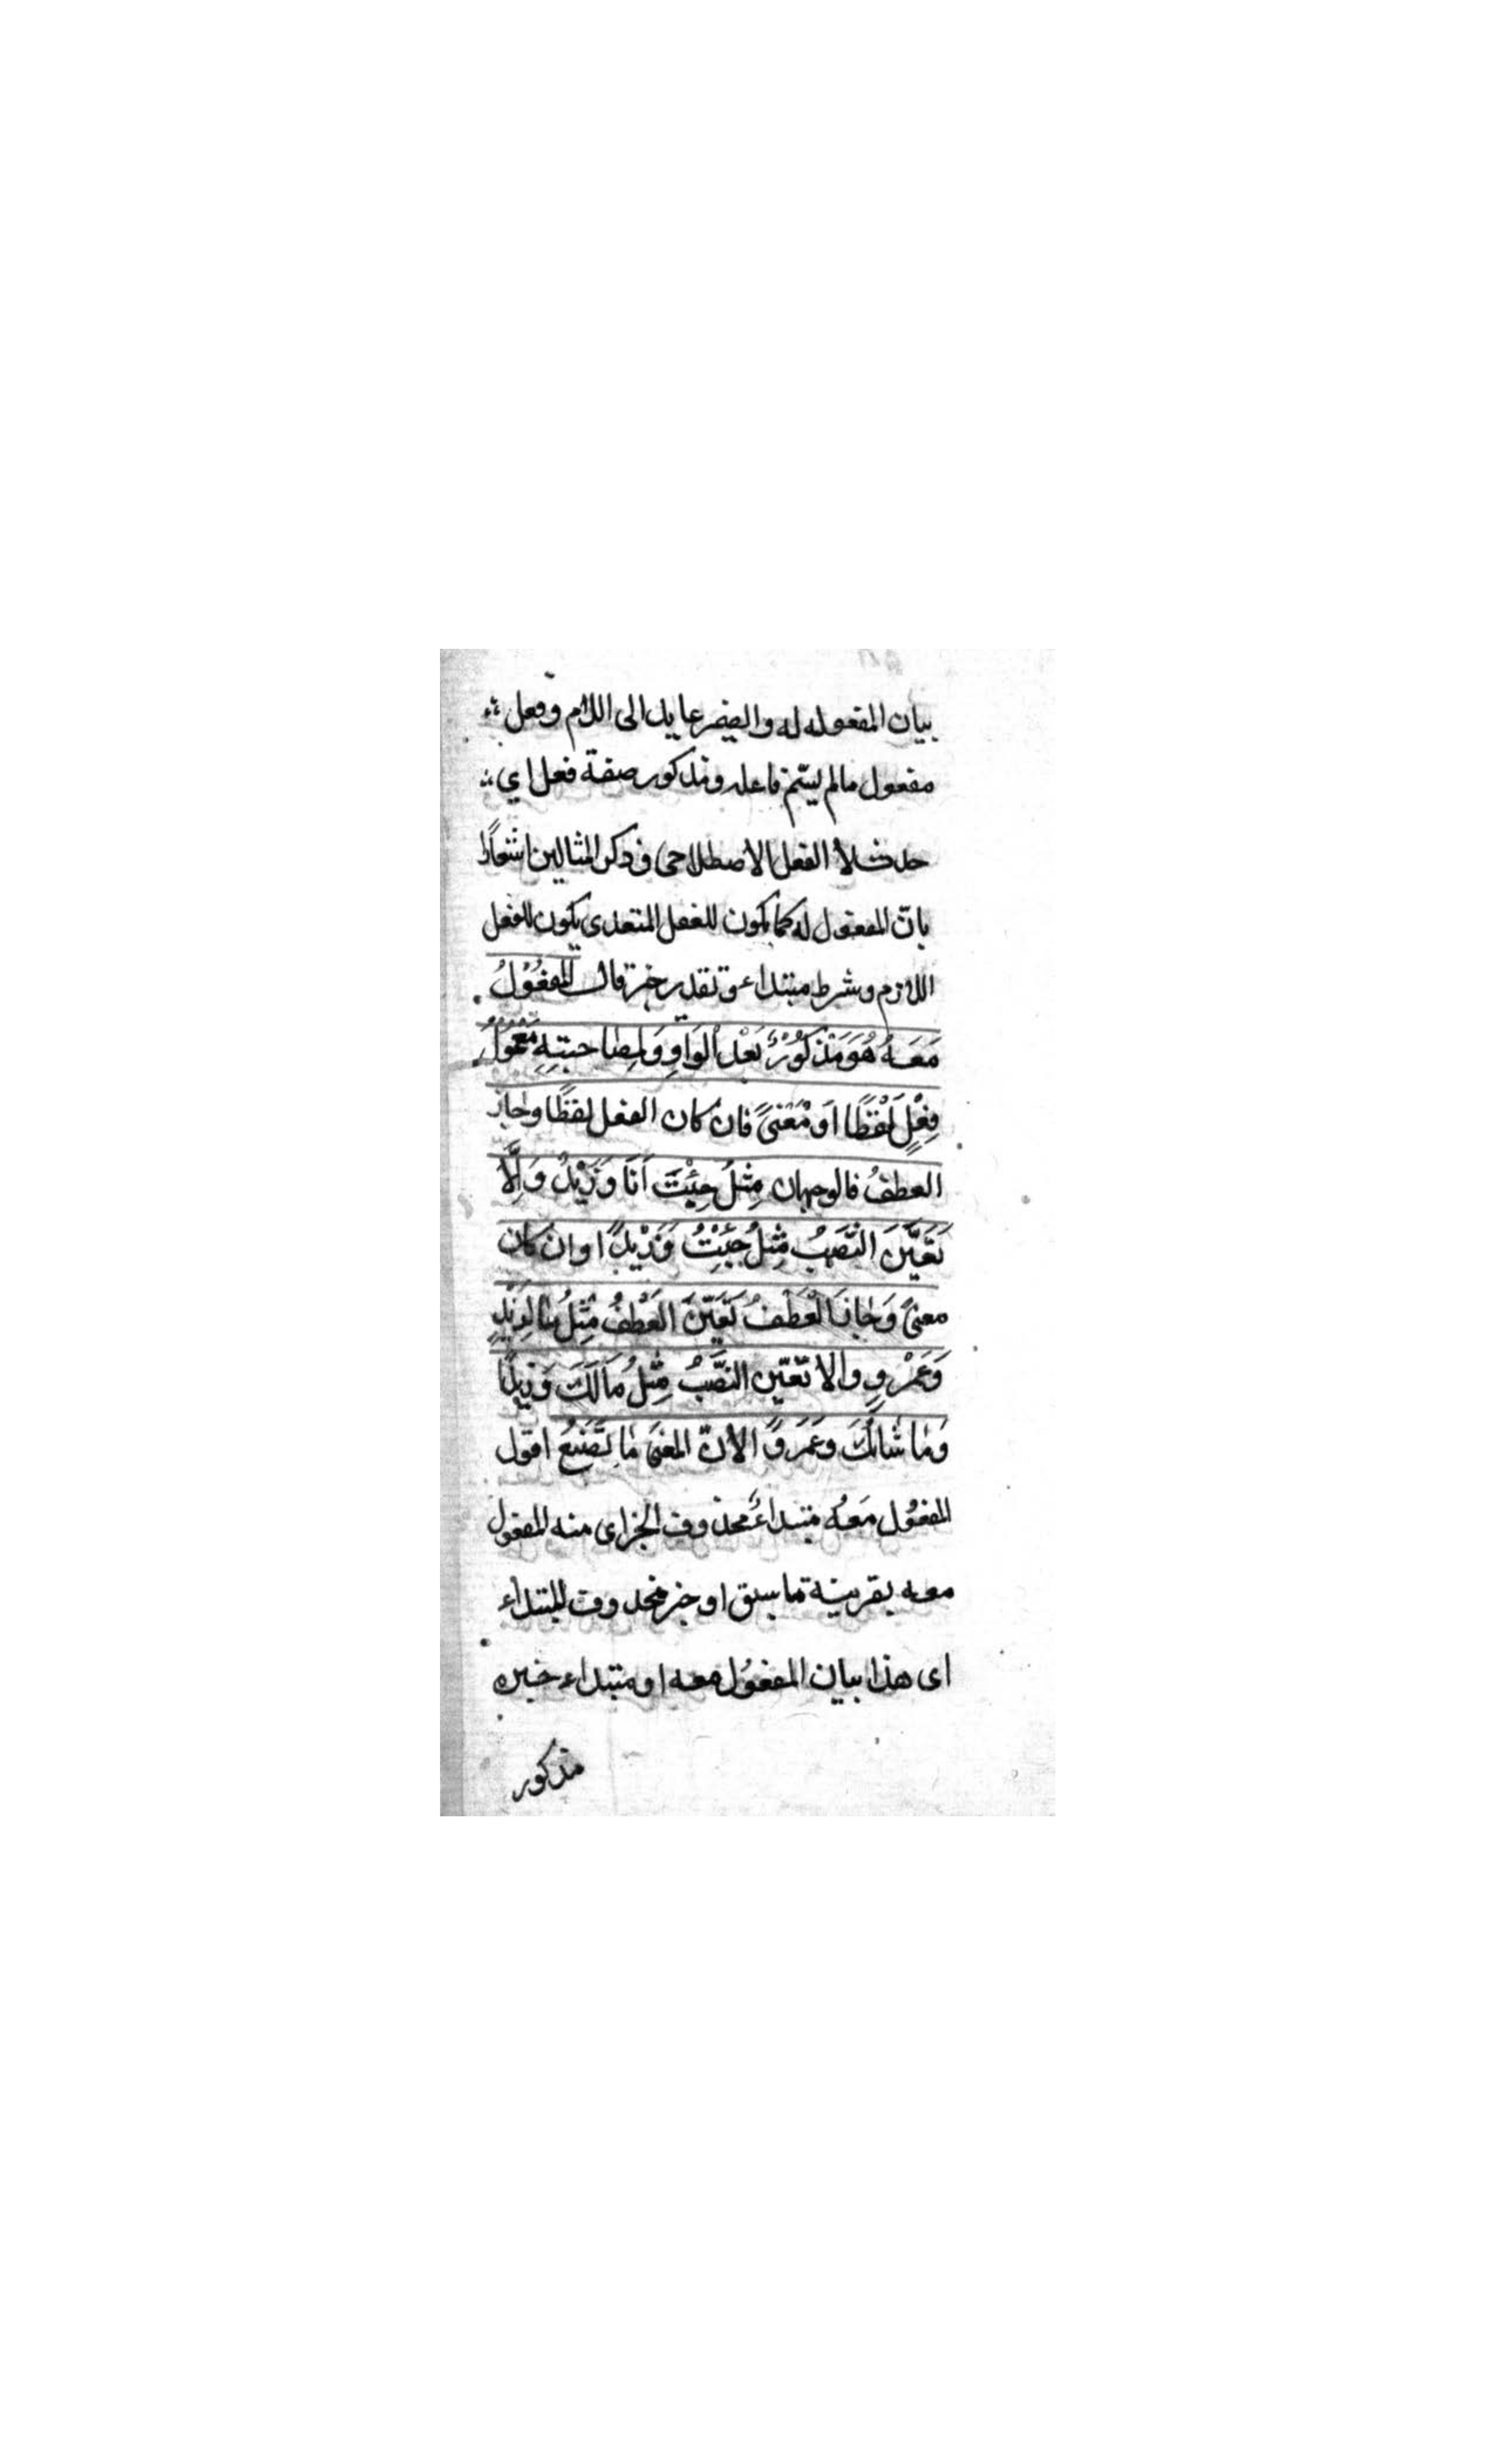 بيان المفعوله له والضمير عايد الى اللام وفعل
مفعول مالم يسّم فاعله ومذكور صفة فعل اي
حدث لا الفعل الاصطلاحى وفى ذكر المثالين اشعارًا
بانّ المفعول له كما يكون للفعل المتعدى يكون للفعل
اللازم وشرط مبتداء وتقدير خبره قال المفعُوْلُ
مَعَهُ هُوَ مَذْكُوْرٌ بَعْدَ الْوَاوِ وَلِمصَاحبتِهِ مَعْمُوْلُ
فِعْلٍ لَفْظًا اَوْ مَعْنىً فان كان الفعل لفظًا وجاز
العطفُ فالوجهان مِثلُ جِئْتَ اَنَا وَزَيْدٌ وَاِلَّا
تَعَيَّنَ النَّصَبُ مِثلُ جِئْتُ وَزَيْدًا وان كان
معنىً وَجازَ الْعَطْفُ تَعَيَّنَ العَطْفُ مِثلُ مَا لِزَيْدٍ
وَعَمْروٍ والا تعّين النصَّبُ مِثْلُ مَالَكَ وَزيدًا
وَمَا شَانُكَ وعَمَروً الانّ المعنىَ مَا تَصْنَعُ اقول
المفعُول مَعَهُ مبتداءٌ محذوف الخبر اى منه المفعول
معه بقرينة ماسبق او خبر محذوف المبتداء
اى هذا بيان المفعُول معه او مبتداء خبره
مذكور